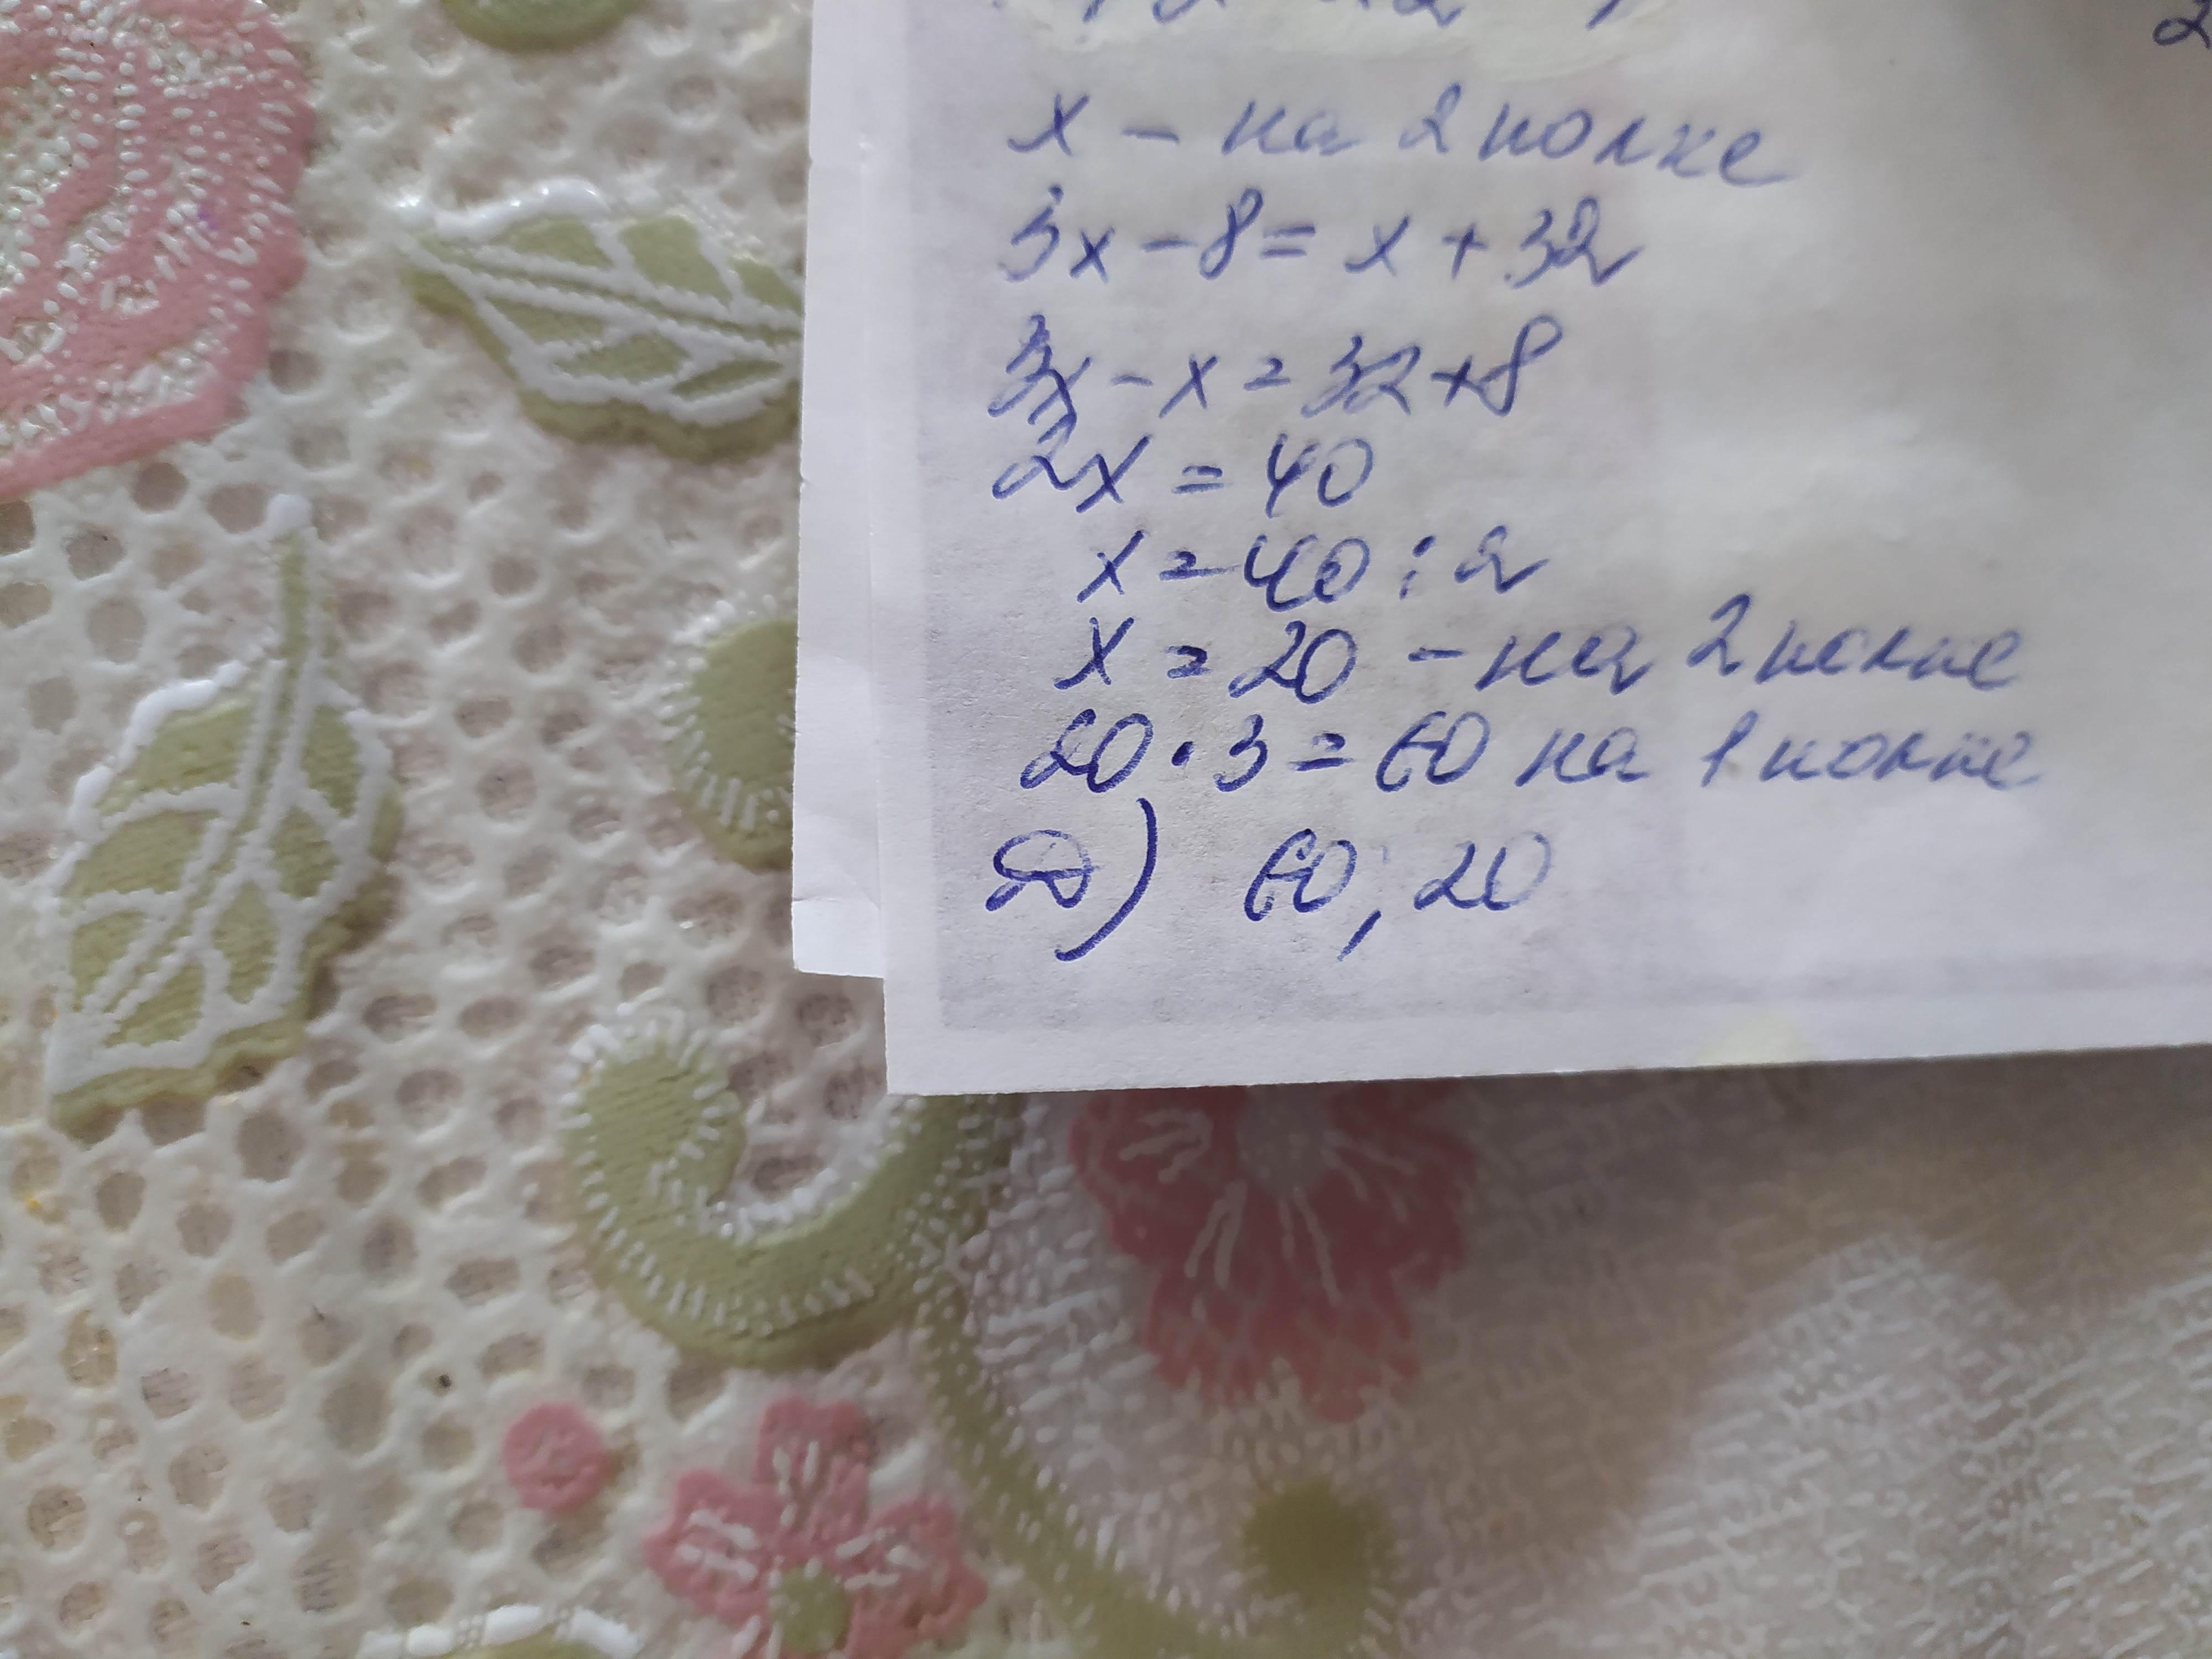 2
x - на 2 полке
3x - 8 = x + 32
3x - x = 32 + 8
2x = 40
x = 40 : 2
x = 20 - на 2 полке
20 · 3 = 60 на 1 полке
) 60, 20